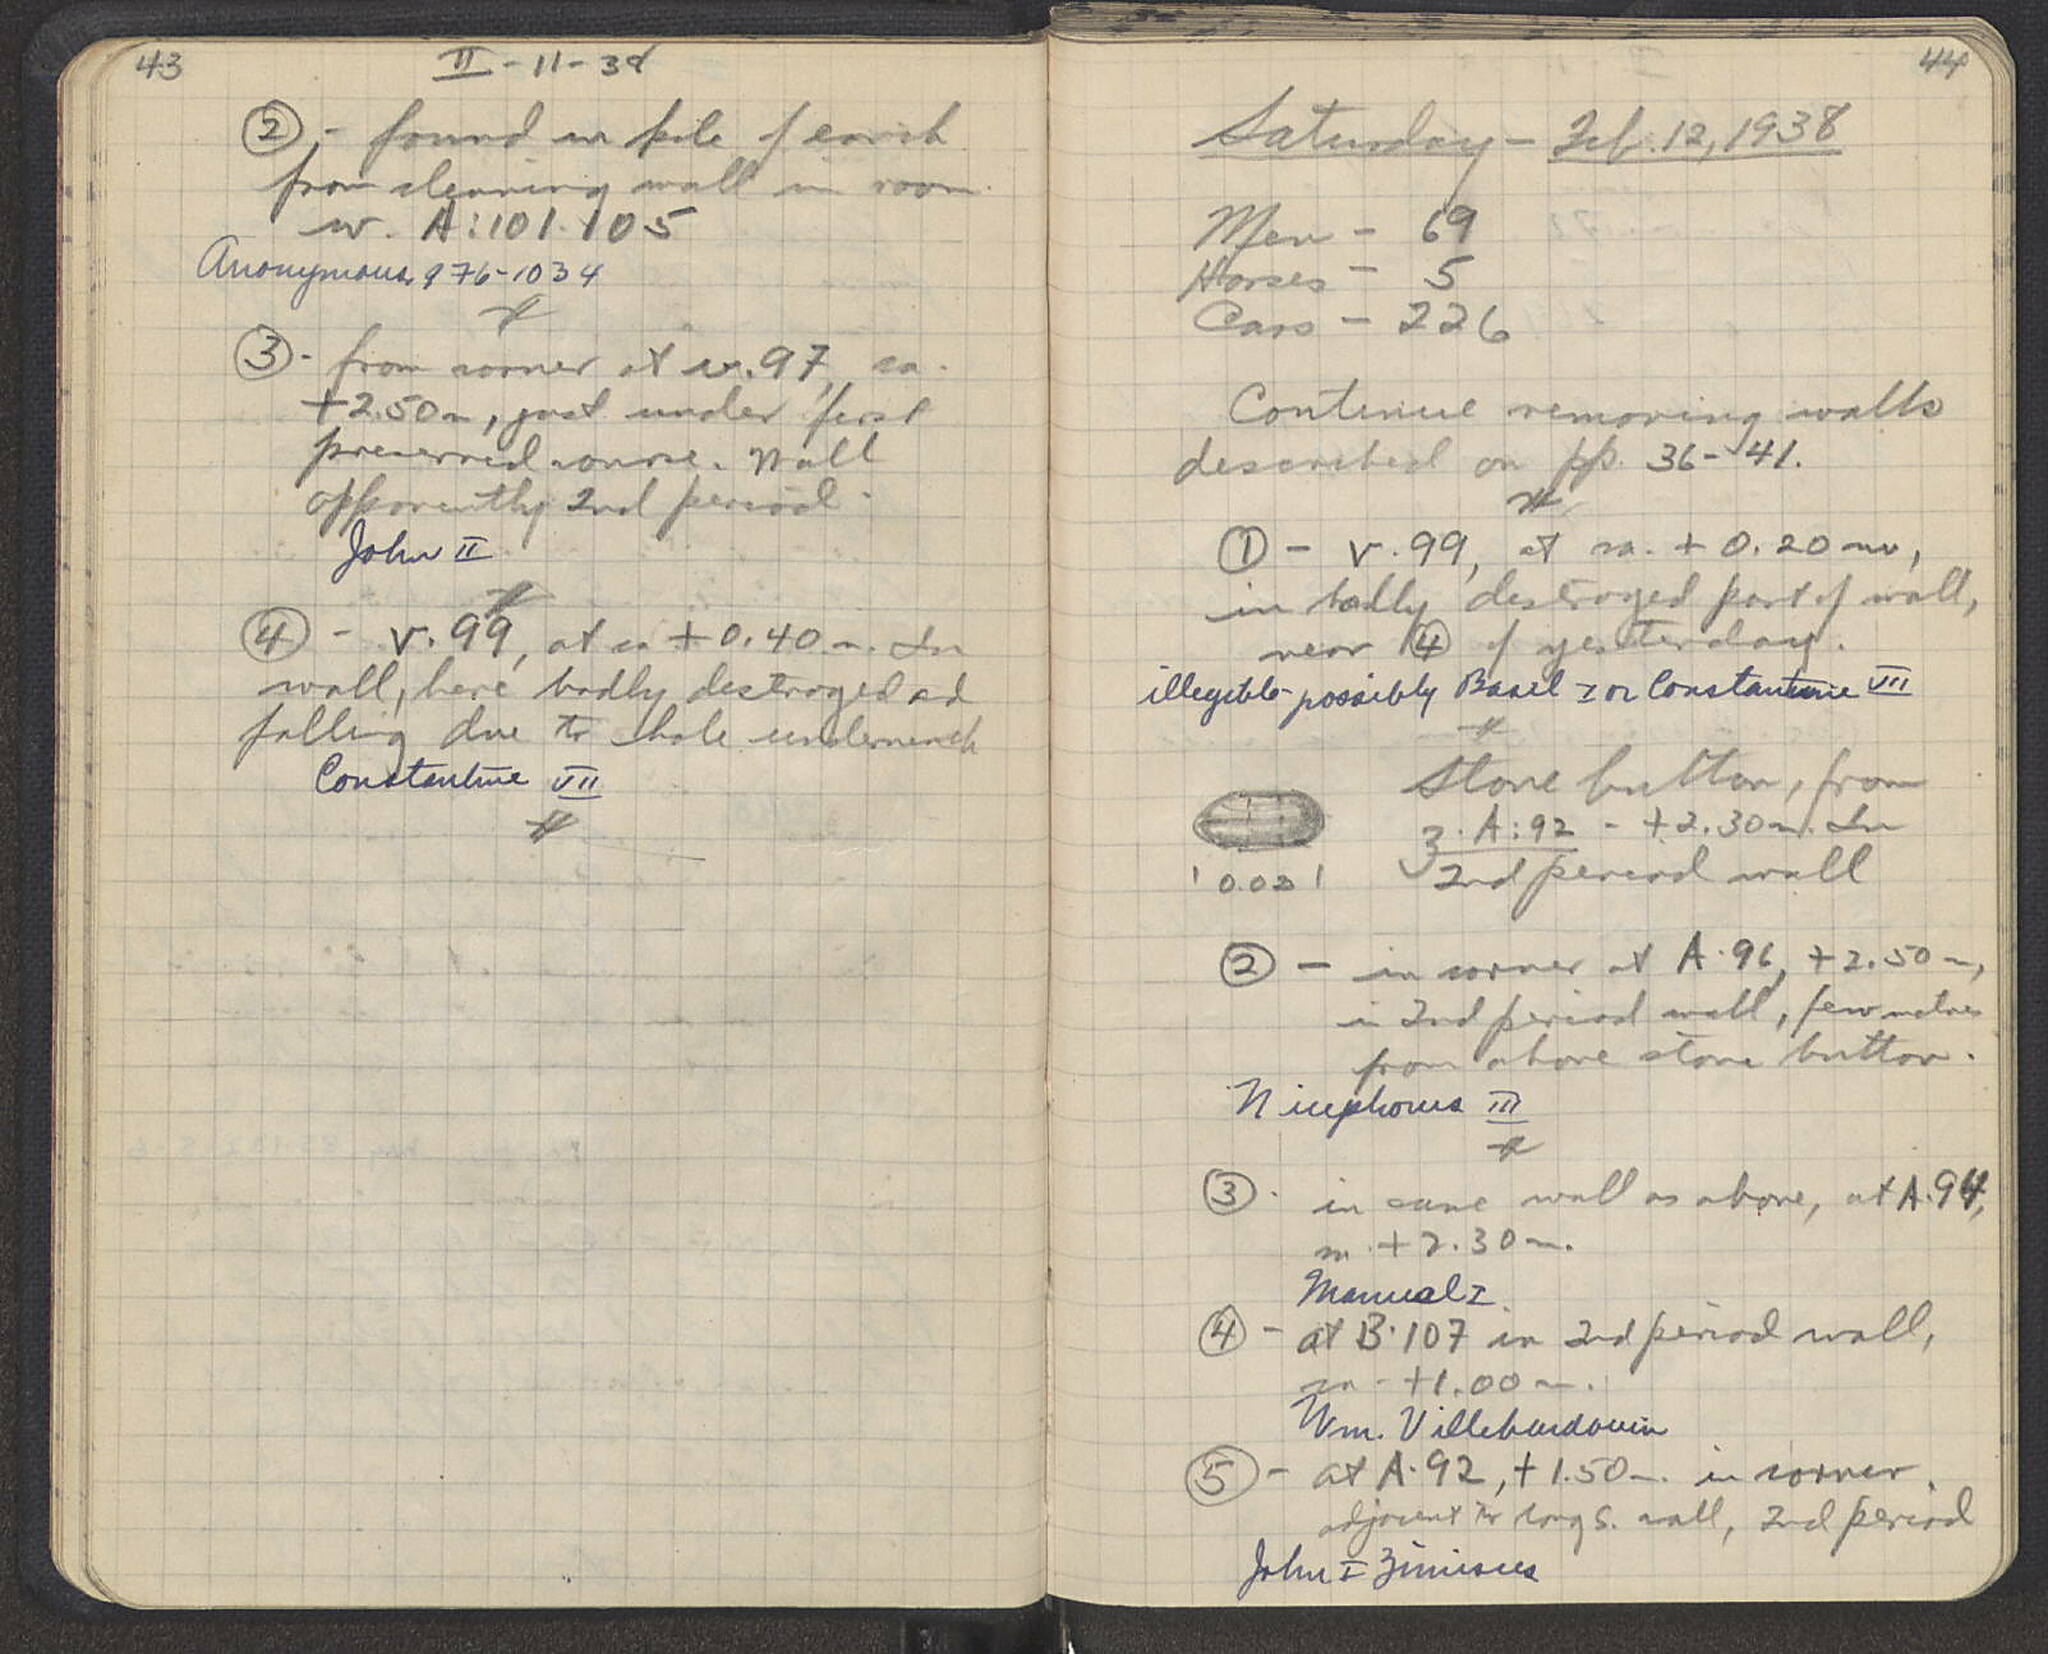 43
II - 11 - 38
② - found in pile of earth
from cleaning wall in room
w. A:101-105
Anonymous 976-1034
③ - from corner at w. 97, ca.
+2.50m, just under first
preserved course. Wall
apparently 2nd period.
John II
④ - v. 99, at ca +0.40m. In
wall, here badly destroyed ad
falling due to hole underneath
Constantine VII
44
Saturday - Feb. 12, 1938
Men - 69
Horses - 5
Cars - 226
Continue removing walls
described on pp. 36-41.
① - v. 99, at ca. + 0.20m,
in badly destroyed part of wall,
near ④ of yesterday.
illegible - possibly Basil I or Constantine VII
Stone button, from
A:92 - +2.30m. In
2nd period wall
② - in corner at A.96, +2.50m,
in 2nd period wall, few metres
from above stone button.
Nicephorus III
③ - in same wall as above, at A.94,
ca. +2.30m.
Manuel I
④ - at B.107 in 2nd period wall,
ca - +1.00m.
Wm. Villehardouin
⑤ - at A.92, +1.50m. in corner
adjacent to long S. wall, 2nd period
John I Zimisces